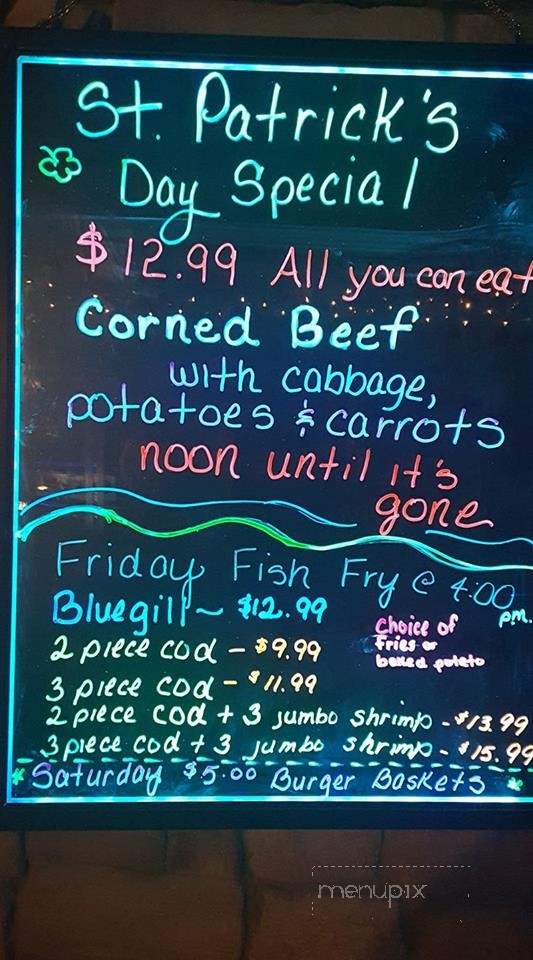 St. Patrick's
Day Special
$12.99 All you can eat
Corned Beef
with cabbage,
potatoes & carrots
noon until it's
gone
Friday Fish Fry @ 4:00
pm.
Bluegill ~ $12.99
Choice of
Fries or
baked potato
2 piece cod - $9.99
3 piece cod - $11.99
2 piece cod + 3 jumbo shrimp - $13.99
3 piece cod + 3 jumbo shrimp - $15.99
Saturday $5.00 Burger Baskets
menupix